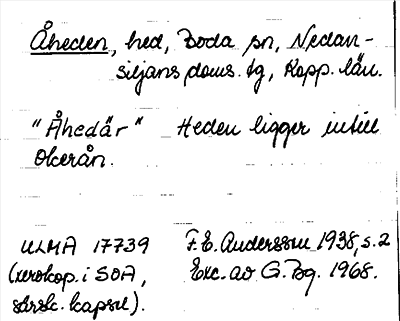 Åheden, hed, Boda sn, Nedan-
siljans doms. tg, Kopp. län.
"Åhedär" Heden ligger intill
Okerån.
ULMA 17739 F.E. Andersson 1938, s. 2
(xerokop. i SOA, Exc. av G.Bg. 1968.
särsk. kapsel).